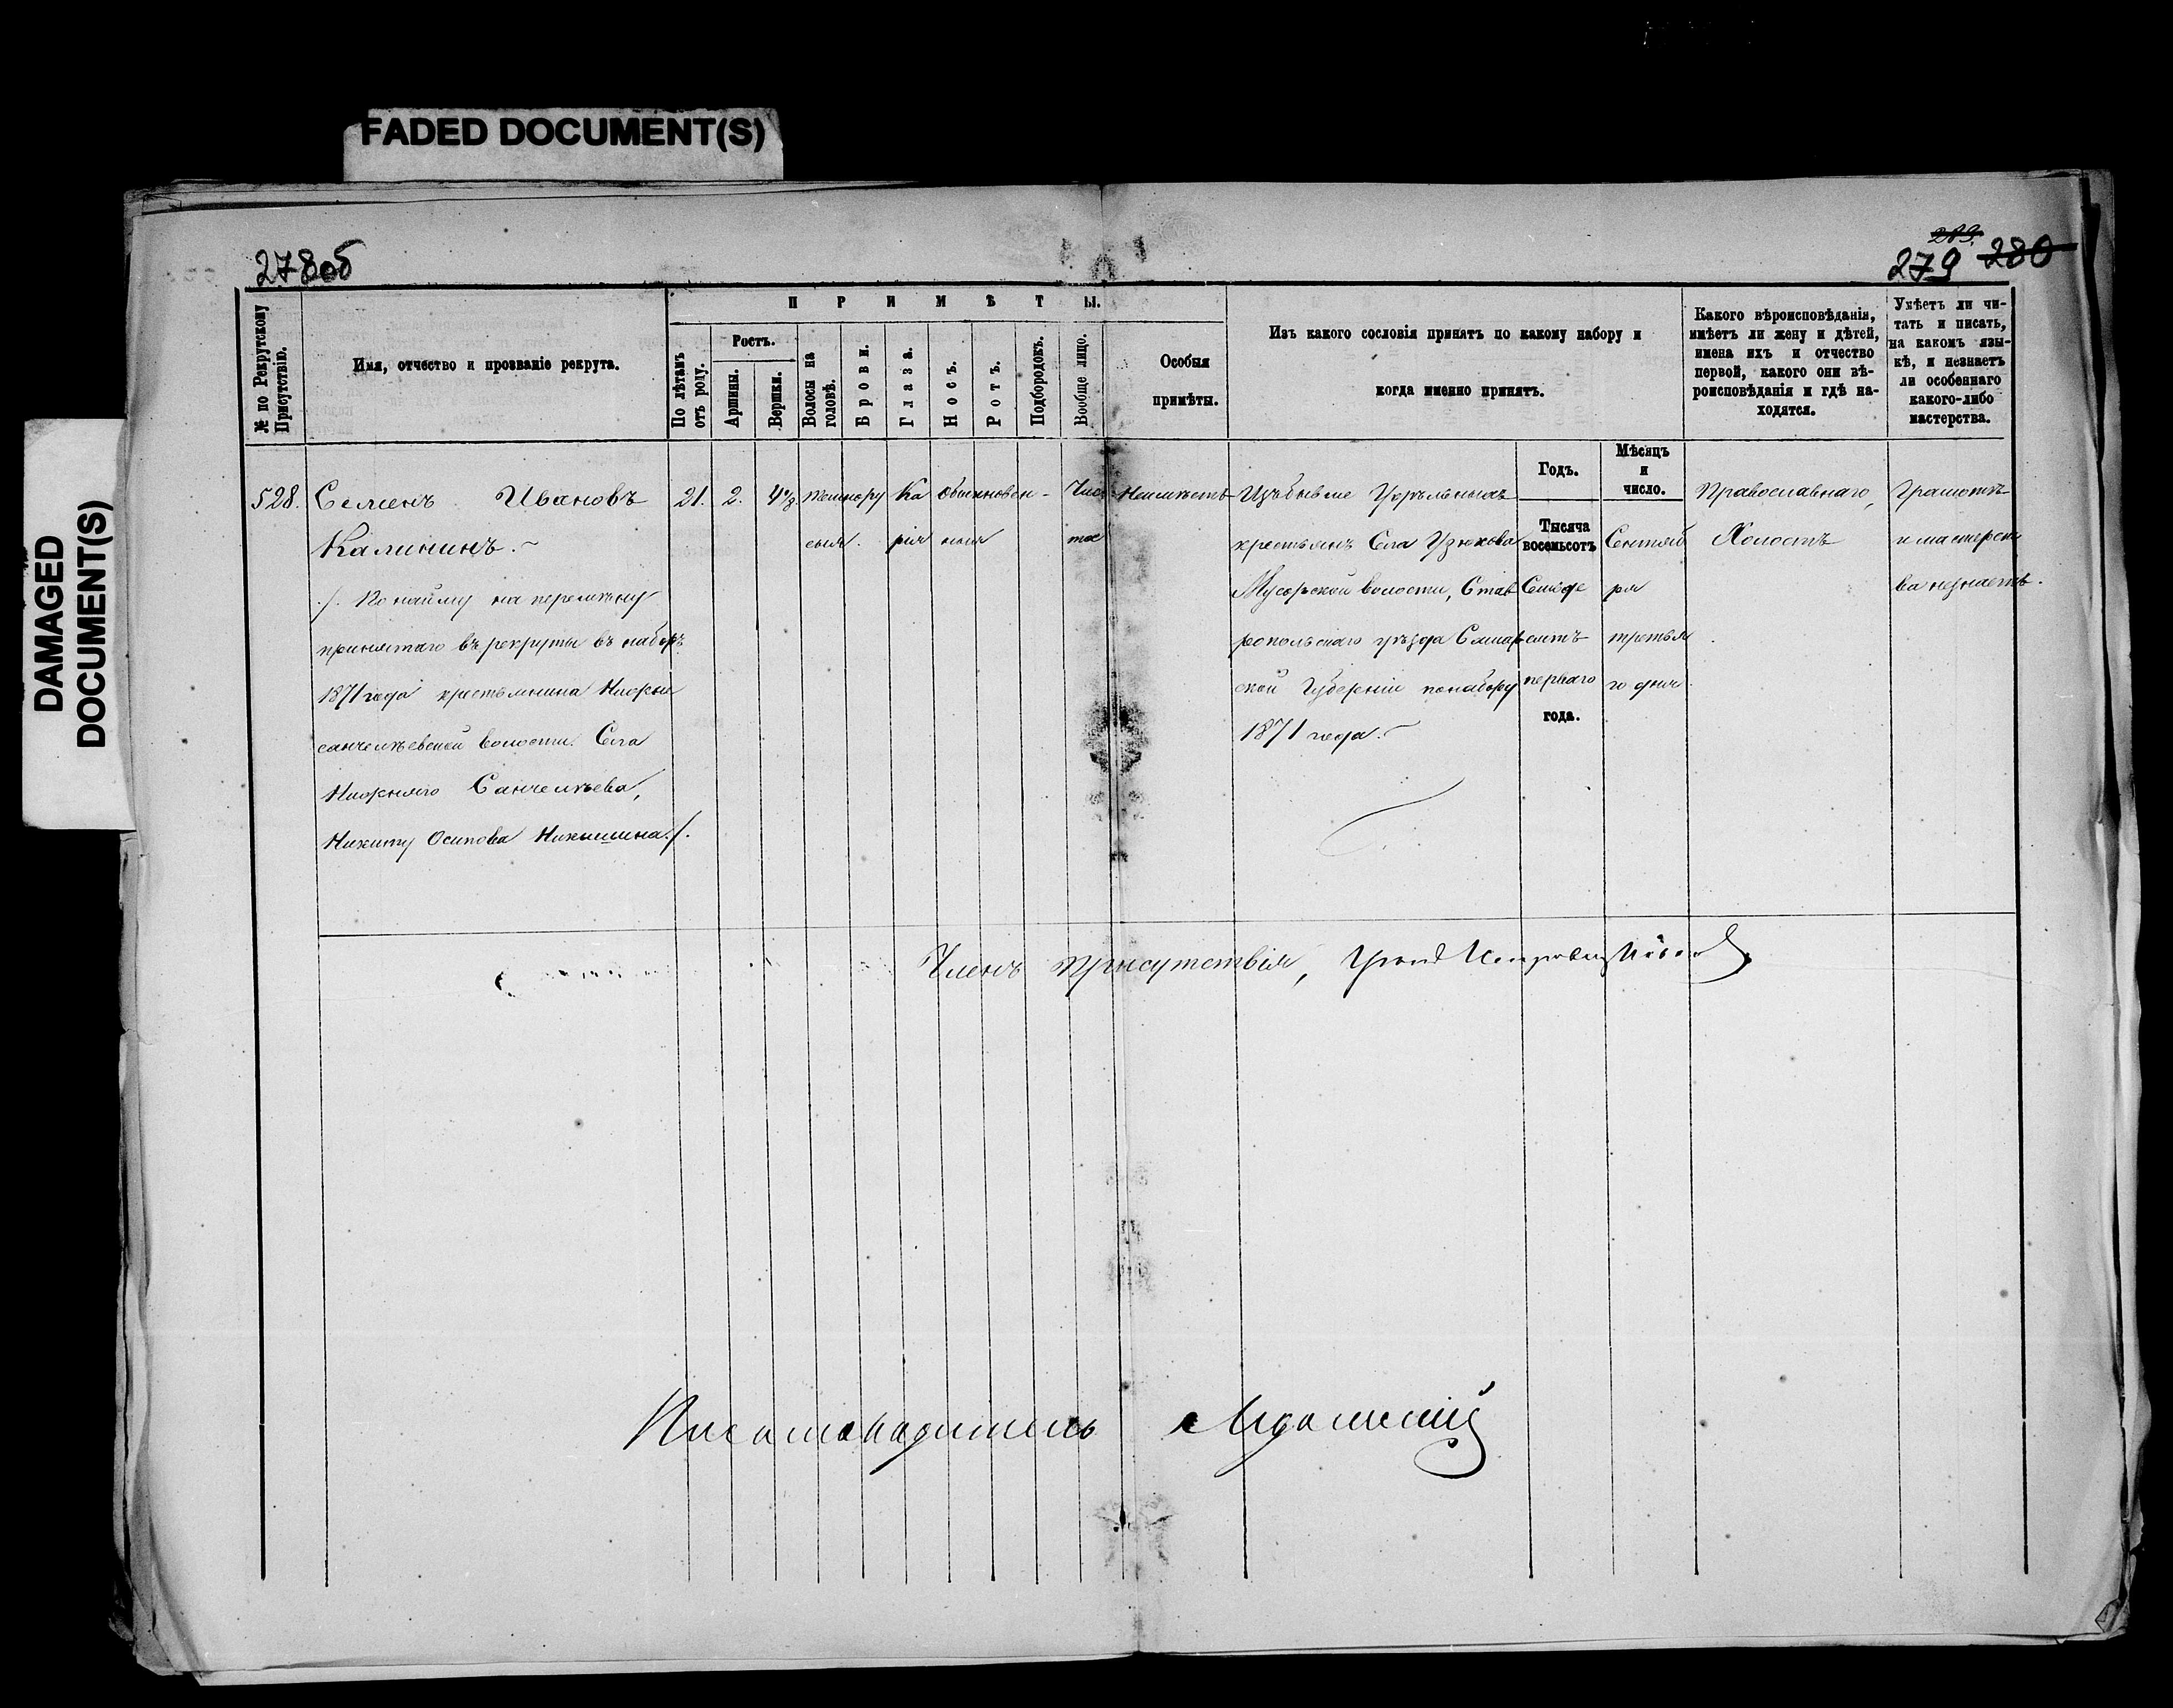 FADED DOCUMENT(S)
DAMAGED
DOCUMENT(S)
278об
283.
279 280
№ по Рекрутскому Присутствію.
Имя, отчество и прозваніе рекрута.
ПРИМѢТЫ.
По лѣтамъ отъ роду.
Ростъ.
Аршины.
Вершки.
Волосы на головѣ.
Брови.
Глаза.
Носъ.
Ротъ.
Подбородокъ.
Вообще лицо.
Особыя
примѣты.
Изъ какого сословія принятъ по какому набору и
когда именно принятъ.
Какого вѣроисповѣданія,
имѣетъ ли жену и дѣтей,
имена ихъ и отчество
первой, какого они вѣ-
роисповѣданія и гдѣ на-
ходятся.
Умѣетъ ли чи-
тать и писать,
на какомъ язы-
кѣ, и незнаетъ
ли особеннаго
какого-либо
мастерства.
Годъ.
Мѣсяцъ
и
число.
528.
Семенъ Ивановъ
Калининъ.
./. По найму на перемѣну
принятаго въ рекруты въ наборъ
1871 года крестьянина Нижне
санчелѣевской волости. Села
Нижняго Санчелѣева,
Никиту Осипова Никишина./.
21.
2.
4½
темнору
сыя.
Ка
рія
обыкновен-
ныя
Чис
тое
Неимѣетъ
Изъ бывше Удѣльныхъ
крестьянъ Села Узюкова
Мусорской волости, Став
ропольскаго уѣзда Самар
ской Губерніи по набору
1871 года.
Тысяча
восемьсотъ
Семьде
сятъ
перваго
года.
Сентяб
ря
третья
го дня
Православнаго,
Холостъ
Грамотѣ
и мастерст
ва незнаетъ.
Членъ Присутствія,
Письмоводитель